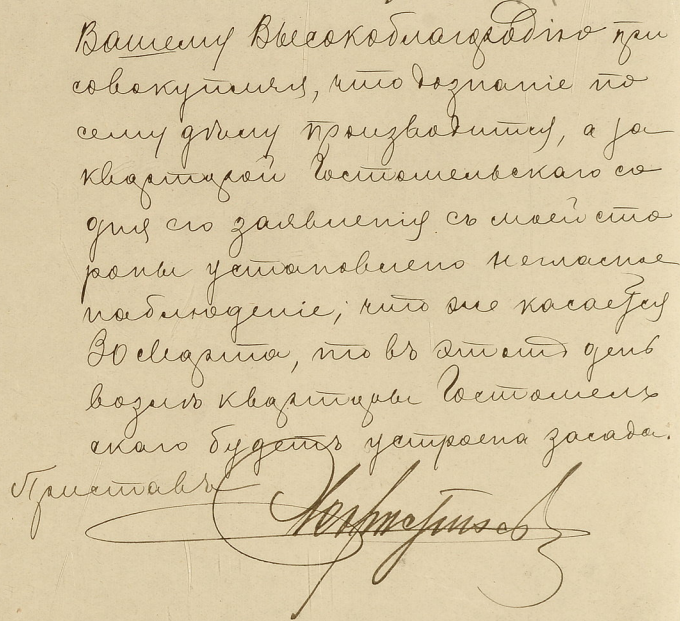 Вашему Высокоблагородію при
совокупляя, что дознаніе по
сему дѣлу производится, а за
квартирой Гостомельскаго со
дня его заявленія съ моей сто
роны установлено негласное
наблюденіе; что же касается
30 Марта, то въ этотъ день
возлѣ квартиры Гостомель
скаго будетъ устроена засада.
Приставъ